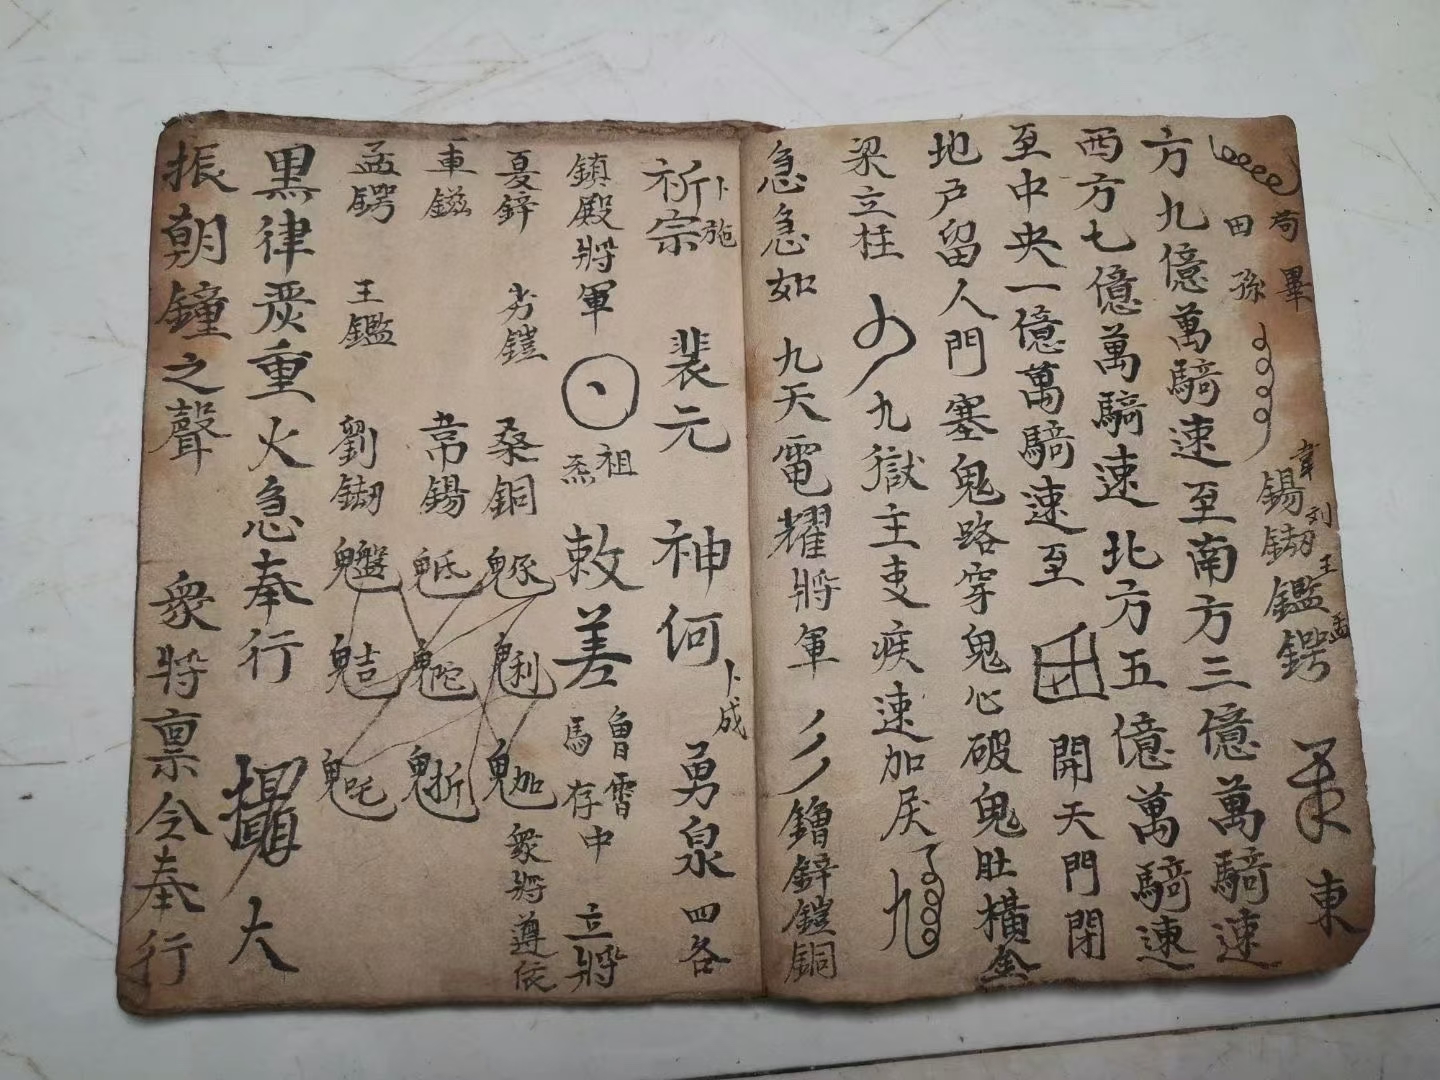 苟畢
田孫
韋刘王孟
錫鎁鑑鍔
東
方九億萬騎速至南方三億萬騎速
西方七億萬騎速北方五億萬騎速
至中央一億萬騎速至 開天門閉
地户留人門塞鬼路穿鬼心破鬼肚橫金
梁立柱 九獄主吏疾速加
急急如 九天電耀將軍 鐪鋅鎧銅
卜施 卜成
祈宗 裴元 神何 勇泉四各
鎮殿將軍 祖炁 敕差 魯雷 馬存中 立將
夏鋅 方鎧 桑銅 衆將遵依
車鎡 韋錫
孟鍔 王鑑 劉鎁
黑律炭重火急奉行 大
振朝鐘之聲 衆將禀令奉行